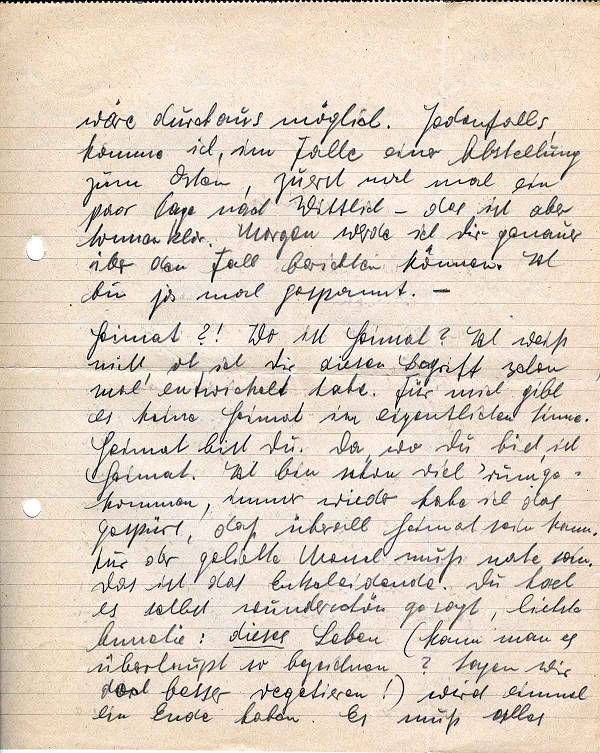 wäre durchaus möglich. Jedenfalls,
komme ich, im Falle einer Abstellung
zum Osten, zuerst noch mal ein
paar Tage nach Wittlich – das ist aber
immer klar. Morgen werde ich Dir genaues
über den Fall berichten können. Ich
bin ja mal gespannt. –
Heimat?! Wo ist Heimat? Ich weiß
nicht ob ich Dir diesen Begriff schon
mal entwickelt habe. Für mich gibt
es keine Heimat im eigentlichen Sinne.
Heimat bist Du. Da, wo Du bist, ist
Heimat. Ich bin schon viel 'rumge-
kommen, immer wieder habe ich das
gespürt, daß überall Heimat sein kann.
Nur der geliebte Mensch muß nahe sein.
Das ist das Entscheidende. Du hast
es selbst wunderschön gesagt, liebste
Annelie: dieses Leben (kann man es
überhaupt so bezeichnen? sagen wir
doch besser vegetieren!) wird einmal
ein Ende haben. Es muß alles